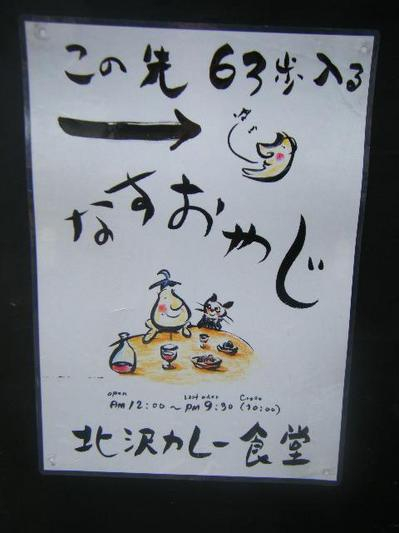 この先 63歩入る
なすおやじ
open last order Close
AM 12:00 ~ PM 9:30 (10:00)
北沢カレー食堂